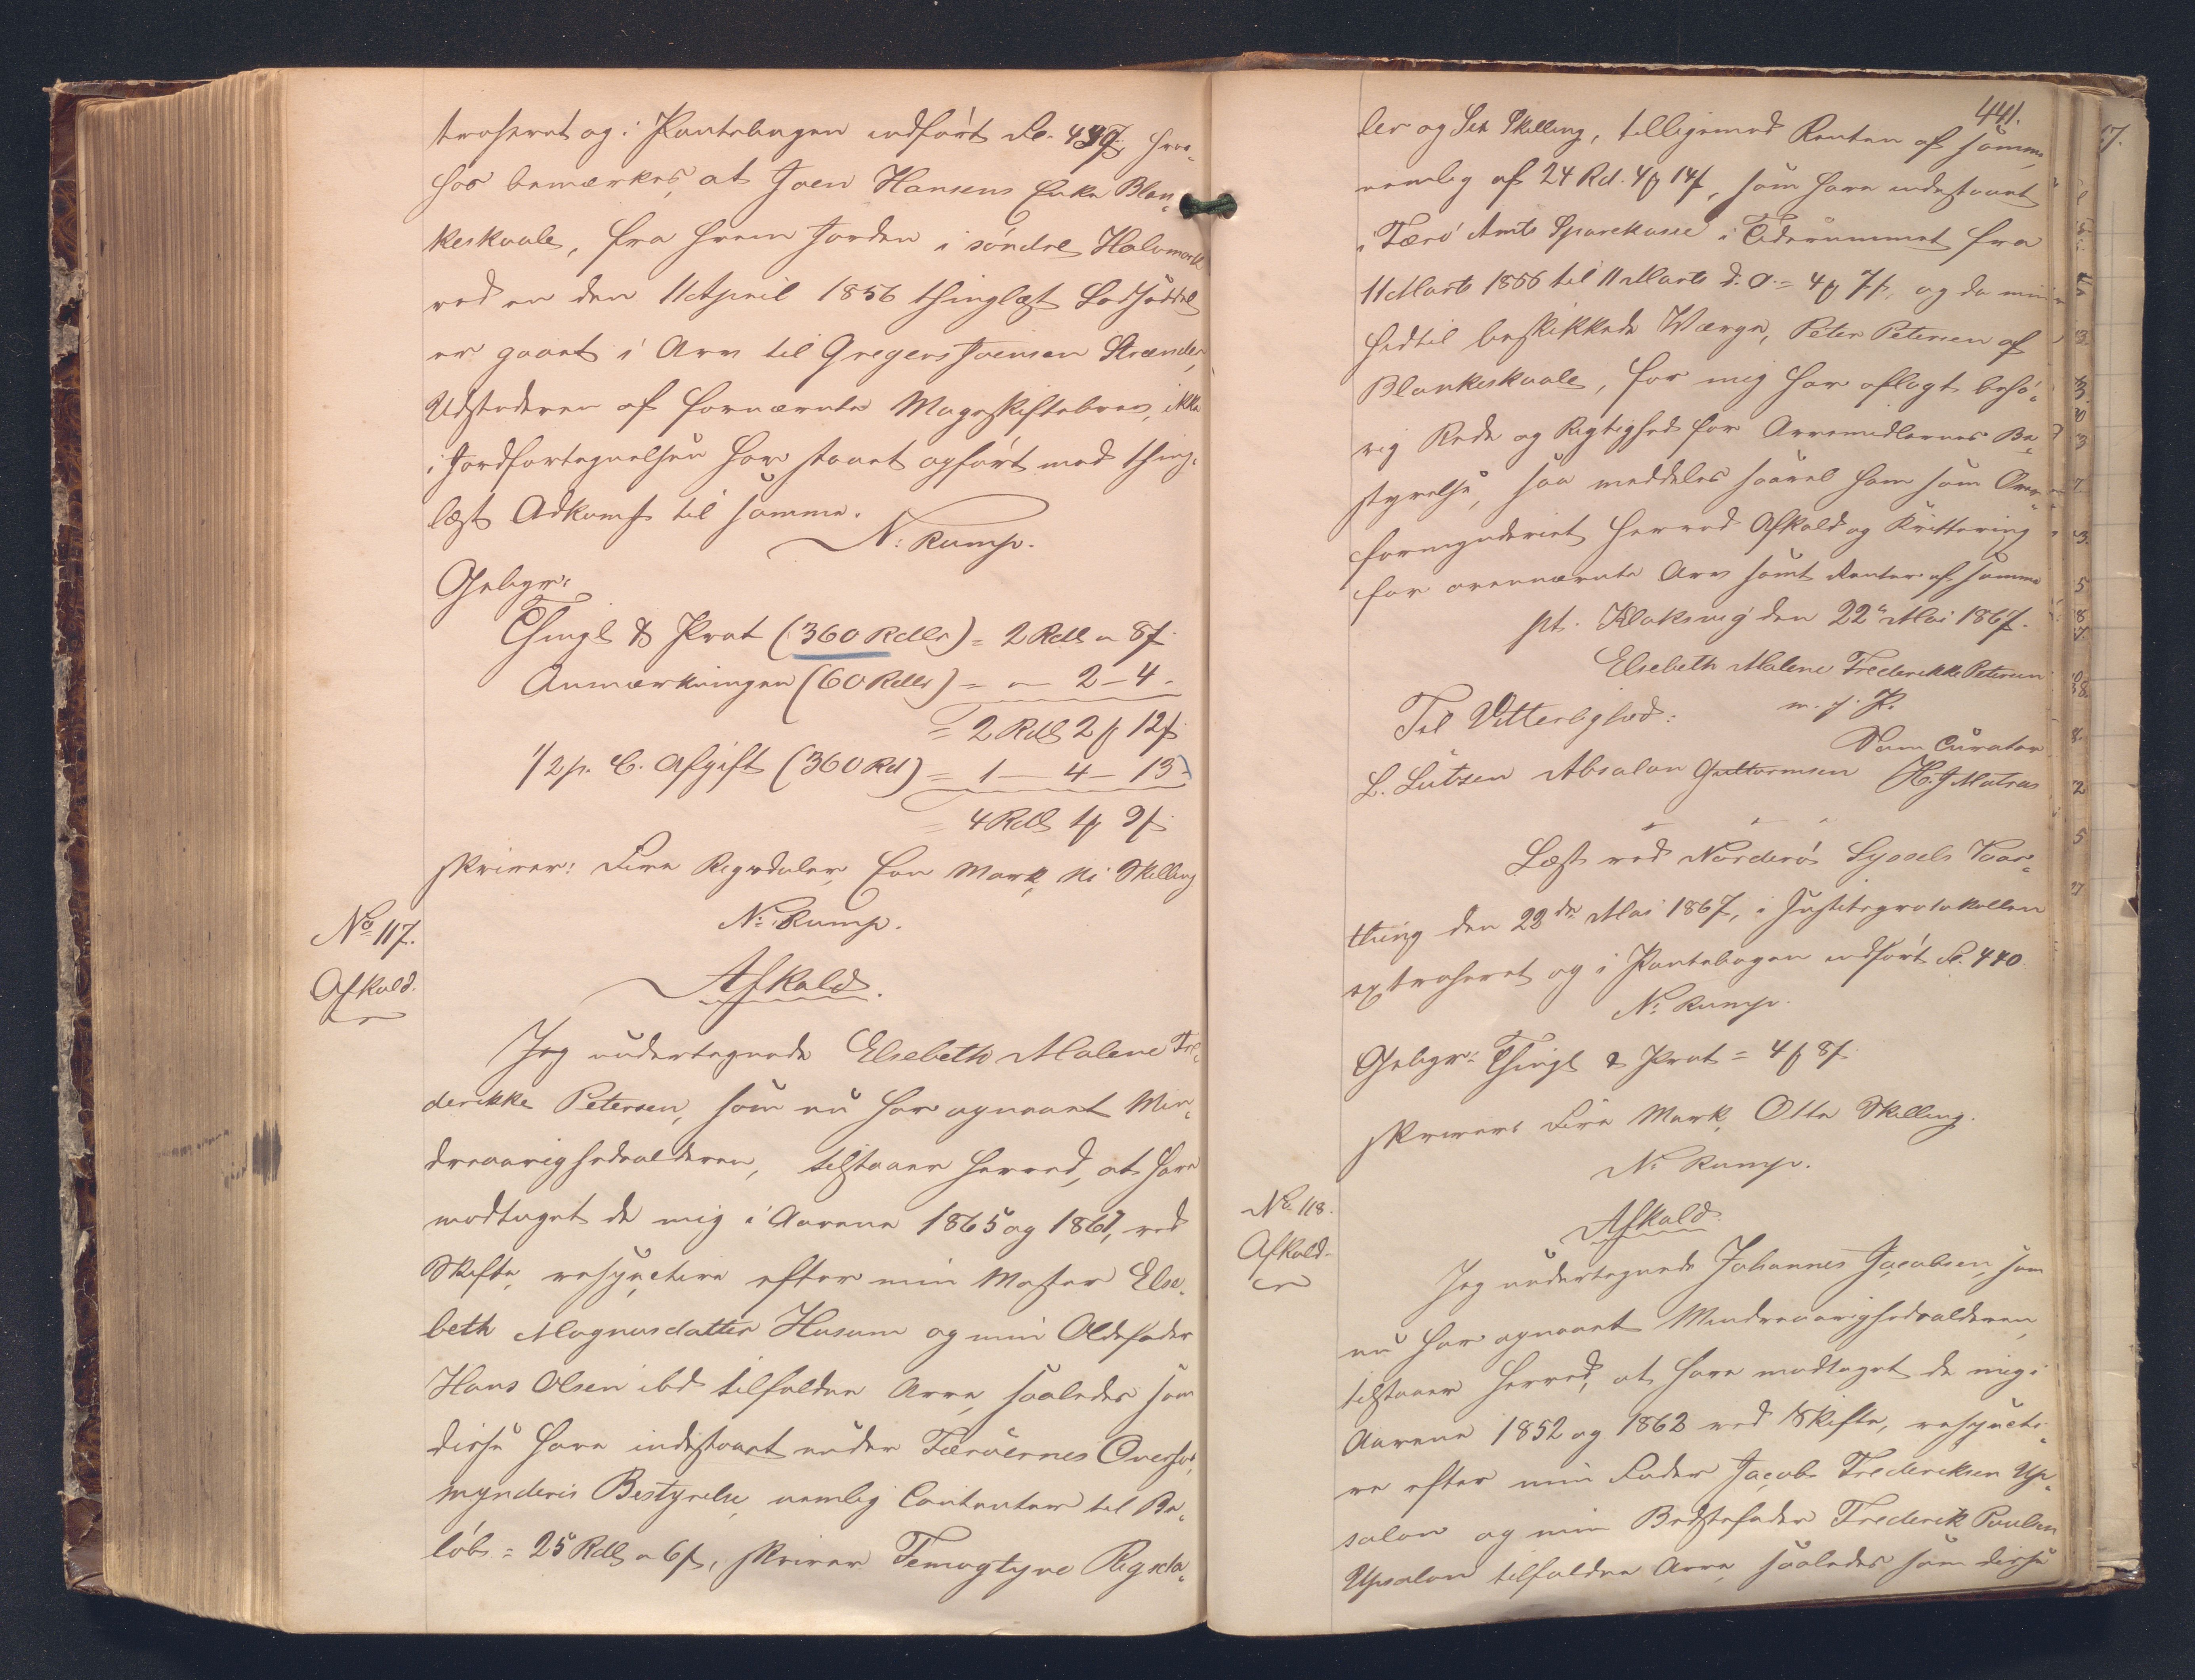 traheret og i Pantebogen indført Fo. 439. Her-
hos bemærkes, at Joen Hansens Enke Blan-
keskaale, fra hvem Jorden i søndre Halvmark
ved en den 11 April 1856 thinglæst Lodseddel
er gaaet i Arv til Gregers Joensen Strænder,
Udstederen af fornævnte Mageskiftebrev, ikke
i Jordfortegnelsen har staaet opført med thing-
læst Adkomst til samme.
N. Rump.
Gebyr:
Thingl & Prot (360 Rdlr) = 2 Rdl " 8 f
Anmærkningen (60 Rdlr) = " — 2 — 4 -
= 2 Rdl 2 f 12 f
1/2 p. C. Afgift (360 Rd) = 1 — 4 — 13
= 4 Rdl 1 f 9 f
skriver: Fire Rigsdaler, Een Mark, Ni Skilling
N. Rump.
No 117.
Afkald.
Afkald.
Jeg undertegnede Elsebeth Malene Fre-
derikke Petersen, som nu har opnaaet Min-
dreaarighedsalderen, tilstaaer herved, at have
modtaget de mig i Aarene 1865 og 1867, ved
Skifte, respective efter min Moster Else-
beth Magnusdatter Husum og min Oldefader
Hans Olsen ibd tilfaldne Arve, saaledes som
disse have indestaaet under Færøernes Overfor-
mynderis Bestyrelse, nemlig Contanter til Be-
løb = 25 Rdl " 6 f, skriver Femogtyve Rigsda-
441.
ler og Sex Skilling, tilligemed Renten af samme,
nemlig af 24 Rd. 4 f 14 f, som have indestaaet
i Færø Amts Sparekasse i Tidsrummet fra
11 Marts 1866 til 11 Marts d. A. = 4 f 7 f, og da min
hidtil beskikkede Værge, Peter Petersen af
Blankeskaale, for mig har aflagt behø-
rig Rede og Rigtighed for Arvemidlernes Be-
styrelse, saa meddeles saavel ham som Over-
formynderiet herved Afkald og Kvittering
for ovennævnte Arv samt Renter af samme
pt. Klaksvig den 22de Mai 1867.
Elsebeth Malene Frederikke Petersen
m. f. P.
Til Vitterlighed:
Som Curator
L. Lützen Absalon Guttormsen H. J Matras
Læst ved Norderø Syssels Vaar-
thing den 22de Mai 1867, i Justitsprotokollen
extraheret og i Pantebogen indført Fo. 440
N. Rump.
Gebyr: Thingl & Prot = 4 f 8 f
skriver: Fire Mark, Otte Skilling.
N. Rump.
No 118.
Afkald.
Afkald.
Jeg undertegnede Johannes Jacobsen, som
nu har opnaaet Mindreaarighedsalderen,
tilstaaer herved, at have modtaget de mig i
Aarene 1852 og 1862 ved Skifte, respecti-
ve efter min Fader Jacob Frederiksen Up-
salon og min Bedstefader Frederik Poulsen
Upsalon tilfaldne Arve, saaledes som disse